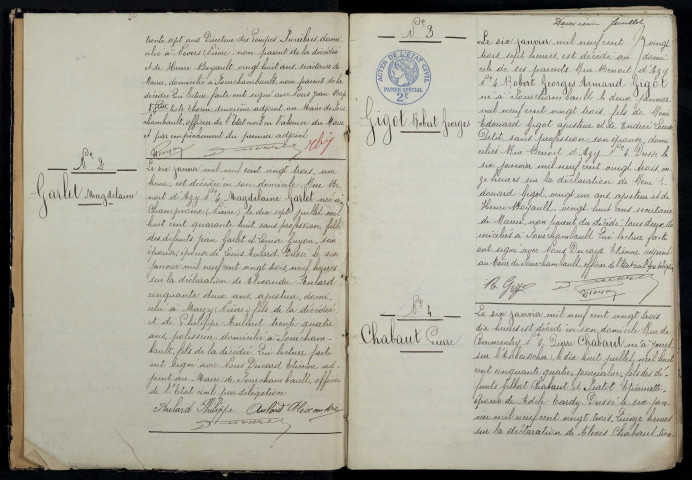 trente sept ans Directeur des Pompes Funèbres domi
cilié à Nevers (Nièvre) non parent de la décédée
et de Henri Boyault, vingt huit ans, secrétaire de
Mairie, domicilié à Fourchambault, non parent de la
décédée. Lecture faite ont signé avec Nous
adjoint au Maire de Four
chambault, officier de l'Etat civil en l'absence du Maire
et par empêchement du premier adjoint
N° 2
Garlet Magdelaine
Le six janvier mil neuf cent vingt trois, à une
heure, est décédée en son domicile Rue Be
noit d'Azy N° 6, Magdelaine Garlet née à
Champvoux (Nièvre) le dix sept juillet mil
huit cent quarante huit sans profession, fille
des défunts Jean Garlet et Louise Guyon,
épouse de Louis Aulard. Dressé le six
janvier mil neuf cent vingt trois neuf heures
sur la déclaration de Alexandre Aulard
cinquante deux ans, ajusteur, domi
cilié à Marzy (Nièvre) fils de la décédée
et de Philippe Aulard trente quatre
ans, polisseur domicilié à Fourcham
bault, fils de la décédée. Lecture faite
ont signé avec Nous Ducard Etienne ad
joint au Maire de Fourchambault, officier
de l'Etat civil par délégation
Aulard Philippe Aulard Alexandre
N° 3
ACTES DE L'ÉTAT CIVIL
PAPIER SPÉCIAL
Gigot Robert Georges
Le six janvier mil neuf cent vingt
trois sept heures, est décédé au domi
cile de ses parents, Rue Benoit d'Azy
N° 4 Robert Georges Armand Gigot
né à Fourchambault le deux janvier
mil neuf cent vingt trois, fils de René
Edouard Gigot ajusteur et de Andrée Louise
Petit, sans profession, son épouse, domi
ciliés Rue Benoit d'Azy N° 4. Dressé le
six janvier mil neuf cent vingt trois on
ze heures sur la déclaration de René E
douard Gigot, vingt un ans ajusteur et de
Henri Boyault, vingt huit ans secrétaire
de Mairie, non parent du décédé, tous deux do
miciliés à Fourchambault. Lecture faite
ont signé avec Nous Ducard Etienne adjoint
au Maire de Fourchambault, officier de l'Etat civil par délégation
N° 4
Chabaut Pierre
Le six janvier mil neuf cent vingt trois
dix heures est décédé en son domicile Rue de
N° 6, Pierre Chabaut né à
sur le dix huit juillet mil huit
cent cinquante quatre, fils des dé
funts Gilbert Chabaut et
époux de Adèle Tardy. Dressé le six jan
vier mil neuf cent vingt trois, heures
sur la déclaration de Alexis Chabaut,